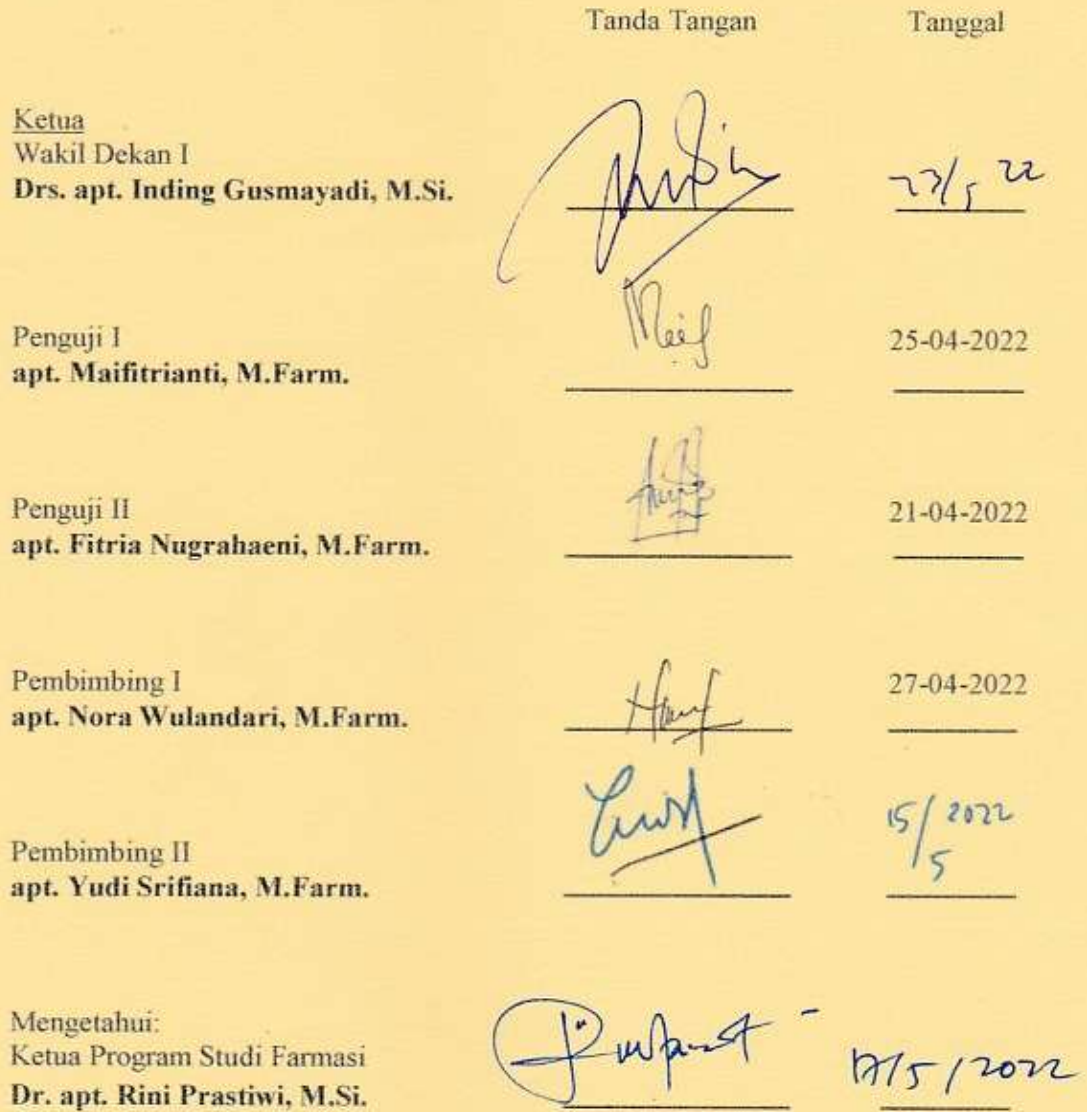 Tanda Tangan Tanggal
Ketua
Wakil Dekan I
Drs. apt. Inding Gusmayadi, M.Si.
23/5 22
Penguji I
25-04-2022
apt. Maifitrianti, M.Farm.
Penguji II
21-04-2022
apt. Fitria Nugrahaeni, M.Farm.
Pembimbing I
27-04-2022
apt. Nora Wulandari, M.Farm.
15/5 2022
Pembimbing II
apt. Yudi Srifiana, M.Farm.
Mengetahui:
Ketua Program Studi Farmasi
Dr. apt. Rini Prastiwi, M.Si.
17/5/2022